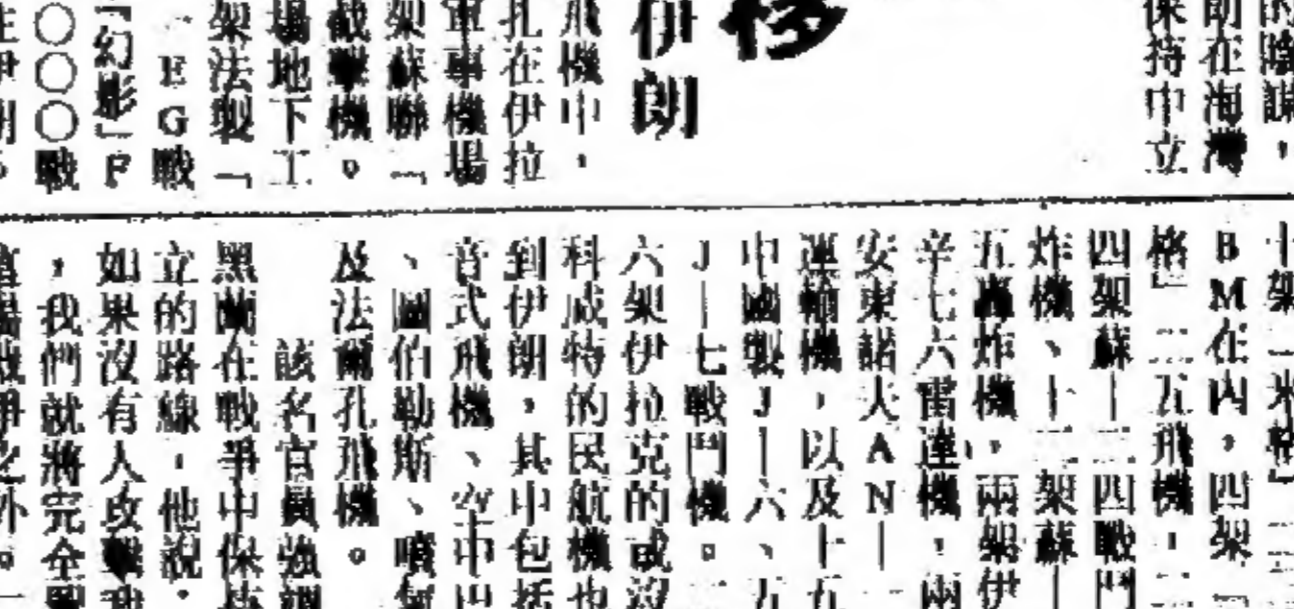 的陰謀，
朗在海灣
保持中立
移
伊朗
飛機中，
扎在伊拉
軍事機場
架蘇聯「
截擊機。
場地下工
架法製「
EG戰
『幻影』F
〇〇〇戰
十架「米格」二
BM在內，四架「
格」二五飛機，二
四架蘇—二四戰鬥
炸機、十二架蘇—
五轟炸機，兩架伊
辛七六雷達機，兩
安東諾夫AN—
運輸機，以及十五
中國製J—六、五
J—七戰鬥機。
六架伊拉克的或沒
科威特的民航機也
到伊朗，其中包括
音式飛機、空中巴
、圖伯勒斯、噴氣
及法爾孔飛機。
該名官員強調
黑蘭在戰爭中保持
立的路線，他說，
如果沒有人攻擊我
，我們就將完全置
戰爭之外。